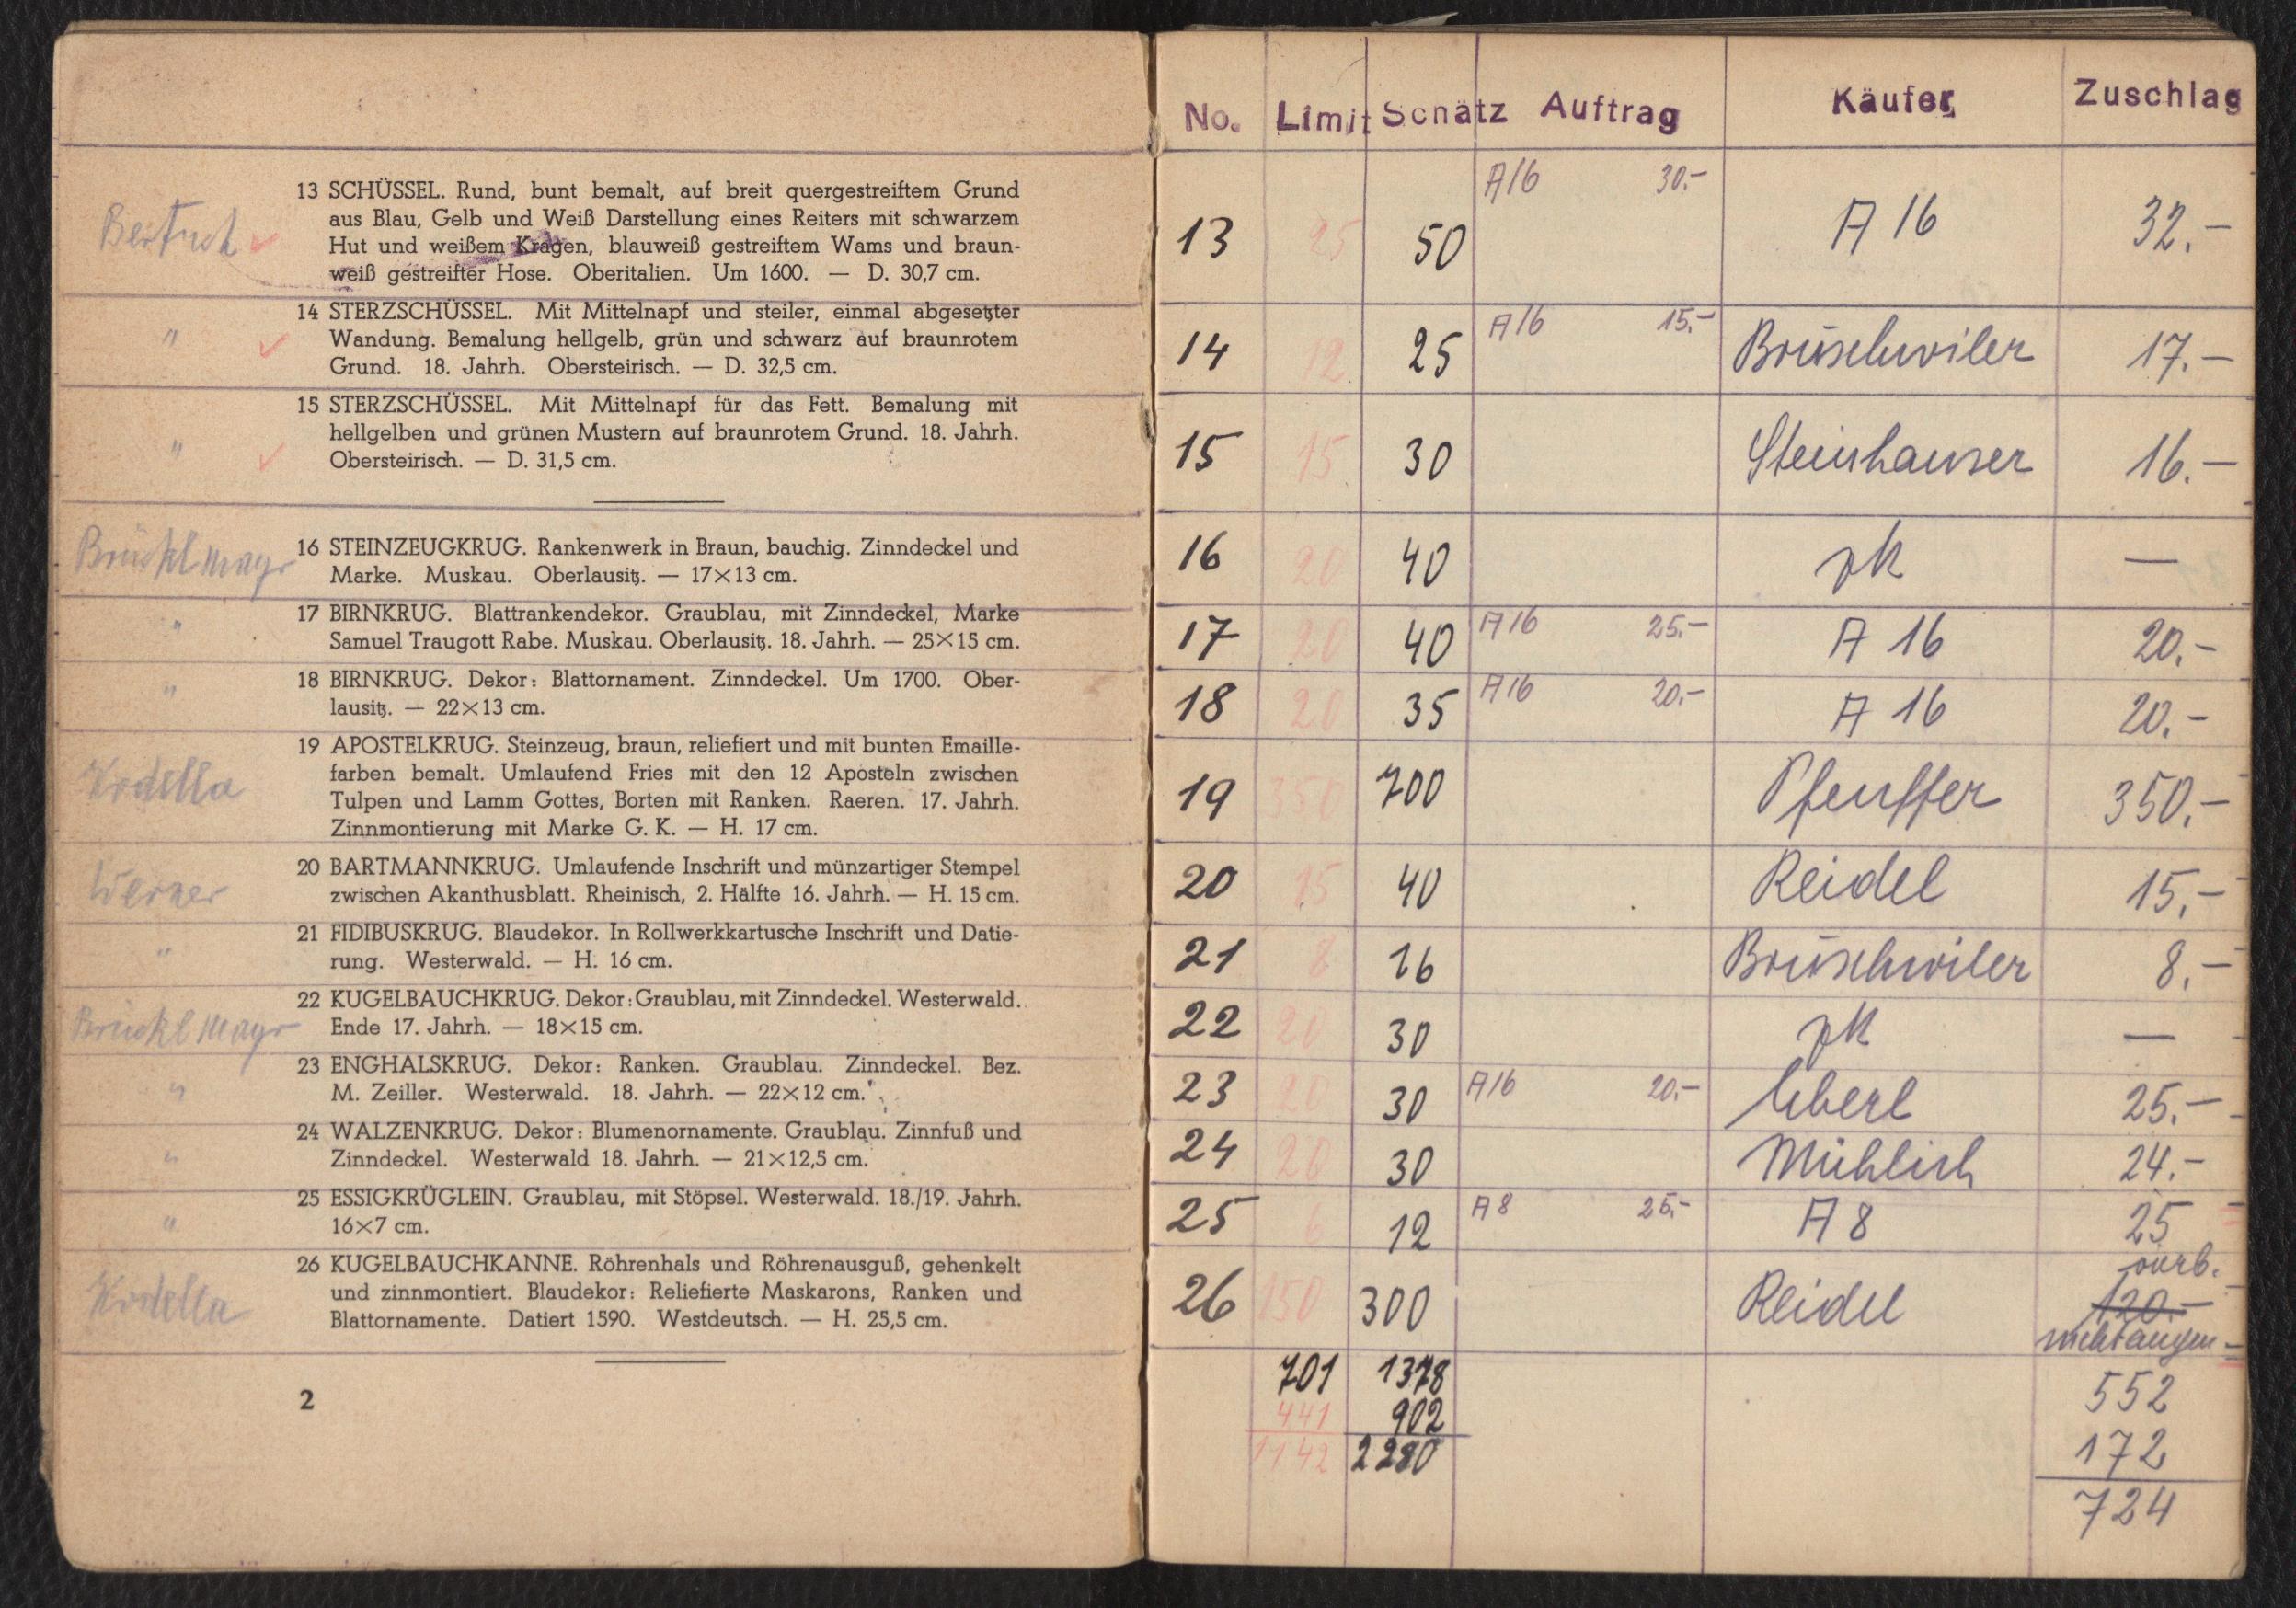 Bertsch
13 SCHÜSSEL. Rund, bunt bemalt, auf breit quergestreiftem Grund
aus Blau, Gelb und Weiß Darstellung eines Reiters mit schwarzem
Hut und weißem Kragen, blauweiß gestreiftem Wams und braun-
weiß gestreifter Hose. Oberitalien. Um 1600. — D. 30,7 cm.
" 14 STERZSCHÜSSEL. Mit Mittelnapf und steiler, einmal abgesetzter
Wandung. Bemalung hellgelb, grün und schwarz auf braunrotem
Grund. 18. Jahrh. Obersteirisch. — D. 32,5 cm.
" 15 STERZSCHÜSSEL. Mit Mittelnapf für das Fett. Bemalung mit
hellgelben und grünen Mustern auf braunrotem Grund. 18. Jahrh.
Obersteirisch. — D. 31,5 cm.
Brücklmayr 16 STEINZEUGKRUG. Rankenwerk in Braun, bauchig. Zinndeckel und
Marke. Muskau. Oberlausitz. — 17×13 cm.
" 17 BIRNKRUG. Blattrankendekor. Graublau, mit Zinndeckel, Marke
Samuel Traugott Rabe. Muskau. Oberlausitz. 18. Jahrh. — 25×15 cm.
" 18 BIRNKRUG. Dekor: Blattornament. Zinndeckel. Um 1700. Ober-
lausitz. — 22×13 cm.
Kodella 19 APOSTELKRUG. Steinzeug, braun, reliefiert und mit bunten Emaille-
farben bemalt. Umlaufend Fries mit den 12 Aposteln zwischen
Tulpen und Lamm Gottes, Borten mit Ranken. Raeren. 17. Jahrh.
Zinnmontierung mit Marke G. K. — H. 17 cm.
Werner 20 BARTMANNKRUG. Umlaufende Inschrift und münzartiger Stempel
zwischen Akanthusblatt. Rheinisch, 2. Hälfte 16. Jahrh. — H. 15 cm.
" 21 FIDIBUSKRUG. Blaudekor. In Rollwerkkartusche Inschrift und Datie-
rung. Westerwald. — H. 16 cm.
Brücklmayr 22 KUGELBAUCHKRUG. Dekor: Graublau, mit Zinndeckel. Westerwald.
Ende 17. Jahrh. — 18×15 cm.
" 23 ENGHALSKRUG. Dekor: Ranken. Graublau. Zinndeckel. Bez.
M. Zeiller. Westerwald. 18. Jahrh. — 22×12 cm.
" 24 WALZENKRUG. Dekor: Blumenornamente. Graublau. Zinnfuß und
Zinndeckel. Westerwald 18. Jahrh. — 21×12,5 cm.
" 25 ESSIGKRÜGLEIN. Graublau, mit Stöpsel. Westerwald. 18./19. Jahrh.
16×7 cm.
Kodella 26 KUGELBAUCHKANNE. Röhrenhals und Röhrenausguß, gehenkelt
und zinnmontiert. Blaudekor: Reliefierte Maskarons, Ranken und
Blattornamente. Datiert 1590. Westdeutsch. — H. 25,5 cm.
2
No. Limit Schätz Auftrag Käufer Zuschlag
13 25 50 A16 30.- A 16 32.-
14 12 25 A16 15.- Brüschwiler 17.-
15 15 30 Steinhauser 16.-
16 20 40 zk —
17 20 40 A16 25.- A 16 20.-
18 20 35 A16 20.- A 16 20.-
19 350 700 Pfeuffer 350.-
20 15 40 Reidel 15.-
21 8 16 Brüschwiler 8.-
22 20 30 zk —
23 20 30 A16 20.- Eberl 25.-
24 20 30 Mühlich 24.-
25 6 12 A8 25.- A 8 25
26 150 300 Reidel vorb.
120.-
nicht angen
701 1378 552
441 902 172
1142 2280 724